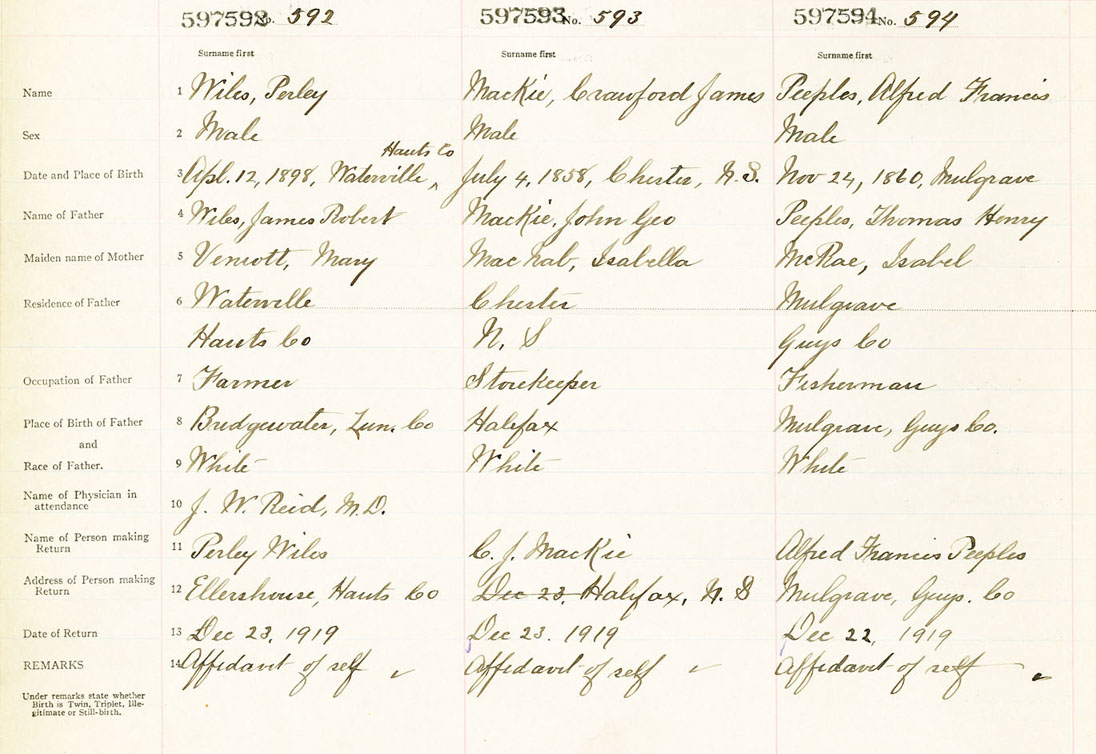 597592 No. 592 597593 No. 593 597594 No. 594
Surname first Surname first Surname first
Name 1 Wiles, Perley MacKie, Crawford James Peeples, Alfred Francis
Sex 2 Male Male Male
Hants Co
Date and Place of Birth 3 Apl. 12, 1898, Waterville, ^ July 4, 1858, Chester, N.S. Nov 24, 1860, Mulgrave
Name of Father 4 Wiles, James Robert MacKie, John Geo Peeples, Thomas Henry
Maiden name of Mother 5 Mary MacNab, Isabella McRae, Isabel
Residence of Father 6 Waterville Chester Mulgrave
Hants Co N. S Guys Co
Occupation of Father 7 Farmer Storekeeper Fisherman
Place of Birth of Father 8 Bridgewater, Lun. Co Halifax Mulgrave, Guys Co.
and
Race of Father. 9 White White White
Name of Physician in
attendance 10 J. W. Reid, M.D.
Name of Person making
Return 11 Perley Wiles C. J. MacKie Alfred Francis Peeples
Address of Person making
Return 12 Ellershouse, Hants Co Dec 23, Halifax, N. S Mulgrave, Guys. Co
Date of Return 13 Dec 23, 1919 Dec 23. 1919 Dec 22, 1919
REMARKS 14 Affidavit of self Affidavit of self Affidavit of self
Under remarks state whether
Birth is Twin, Triplet, Ille-
gitimate or Still-birth.